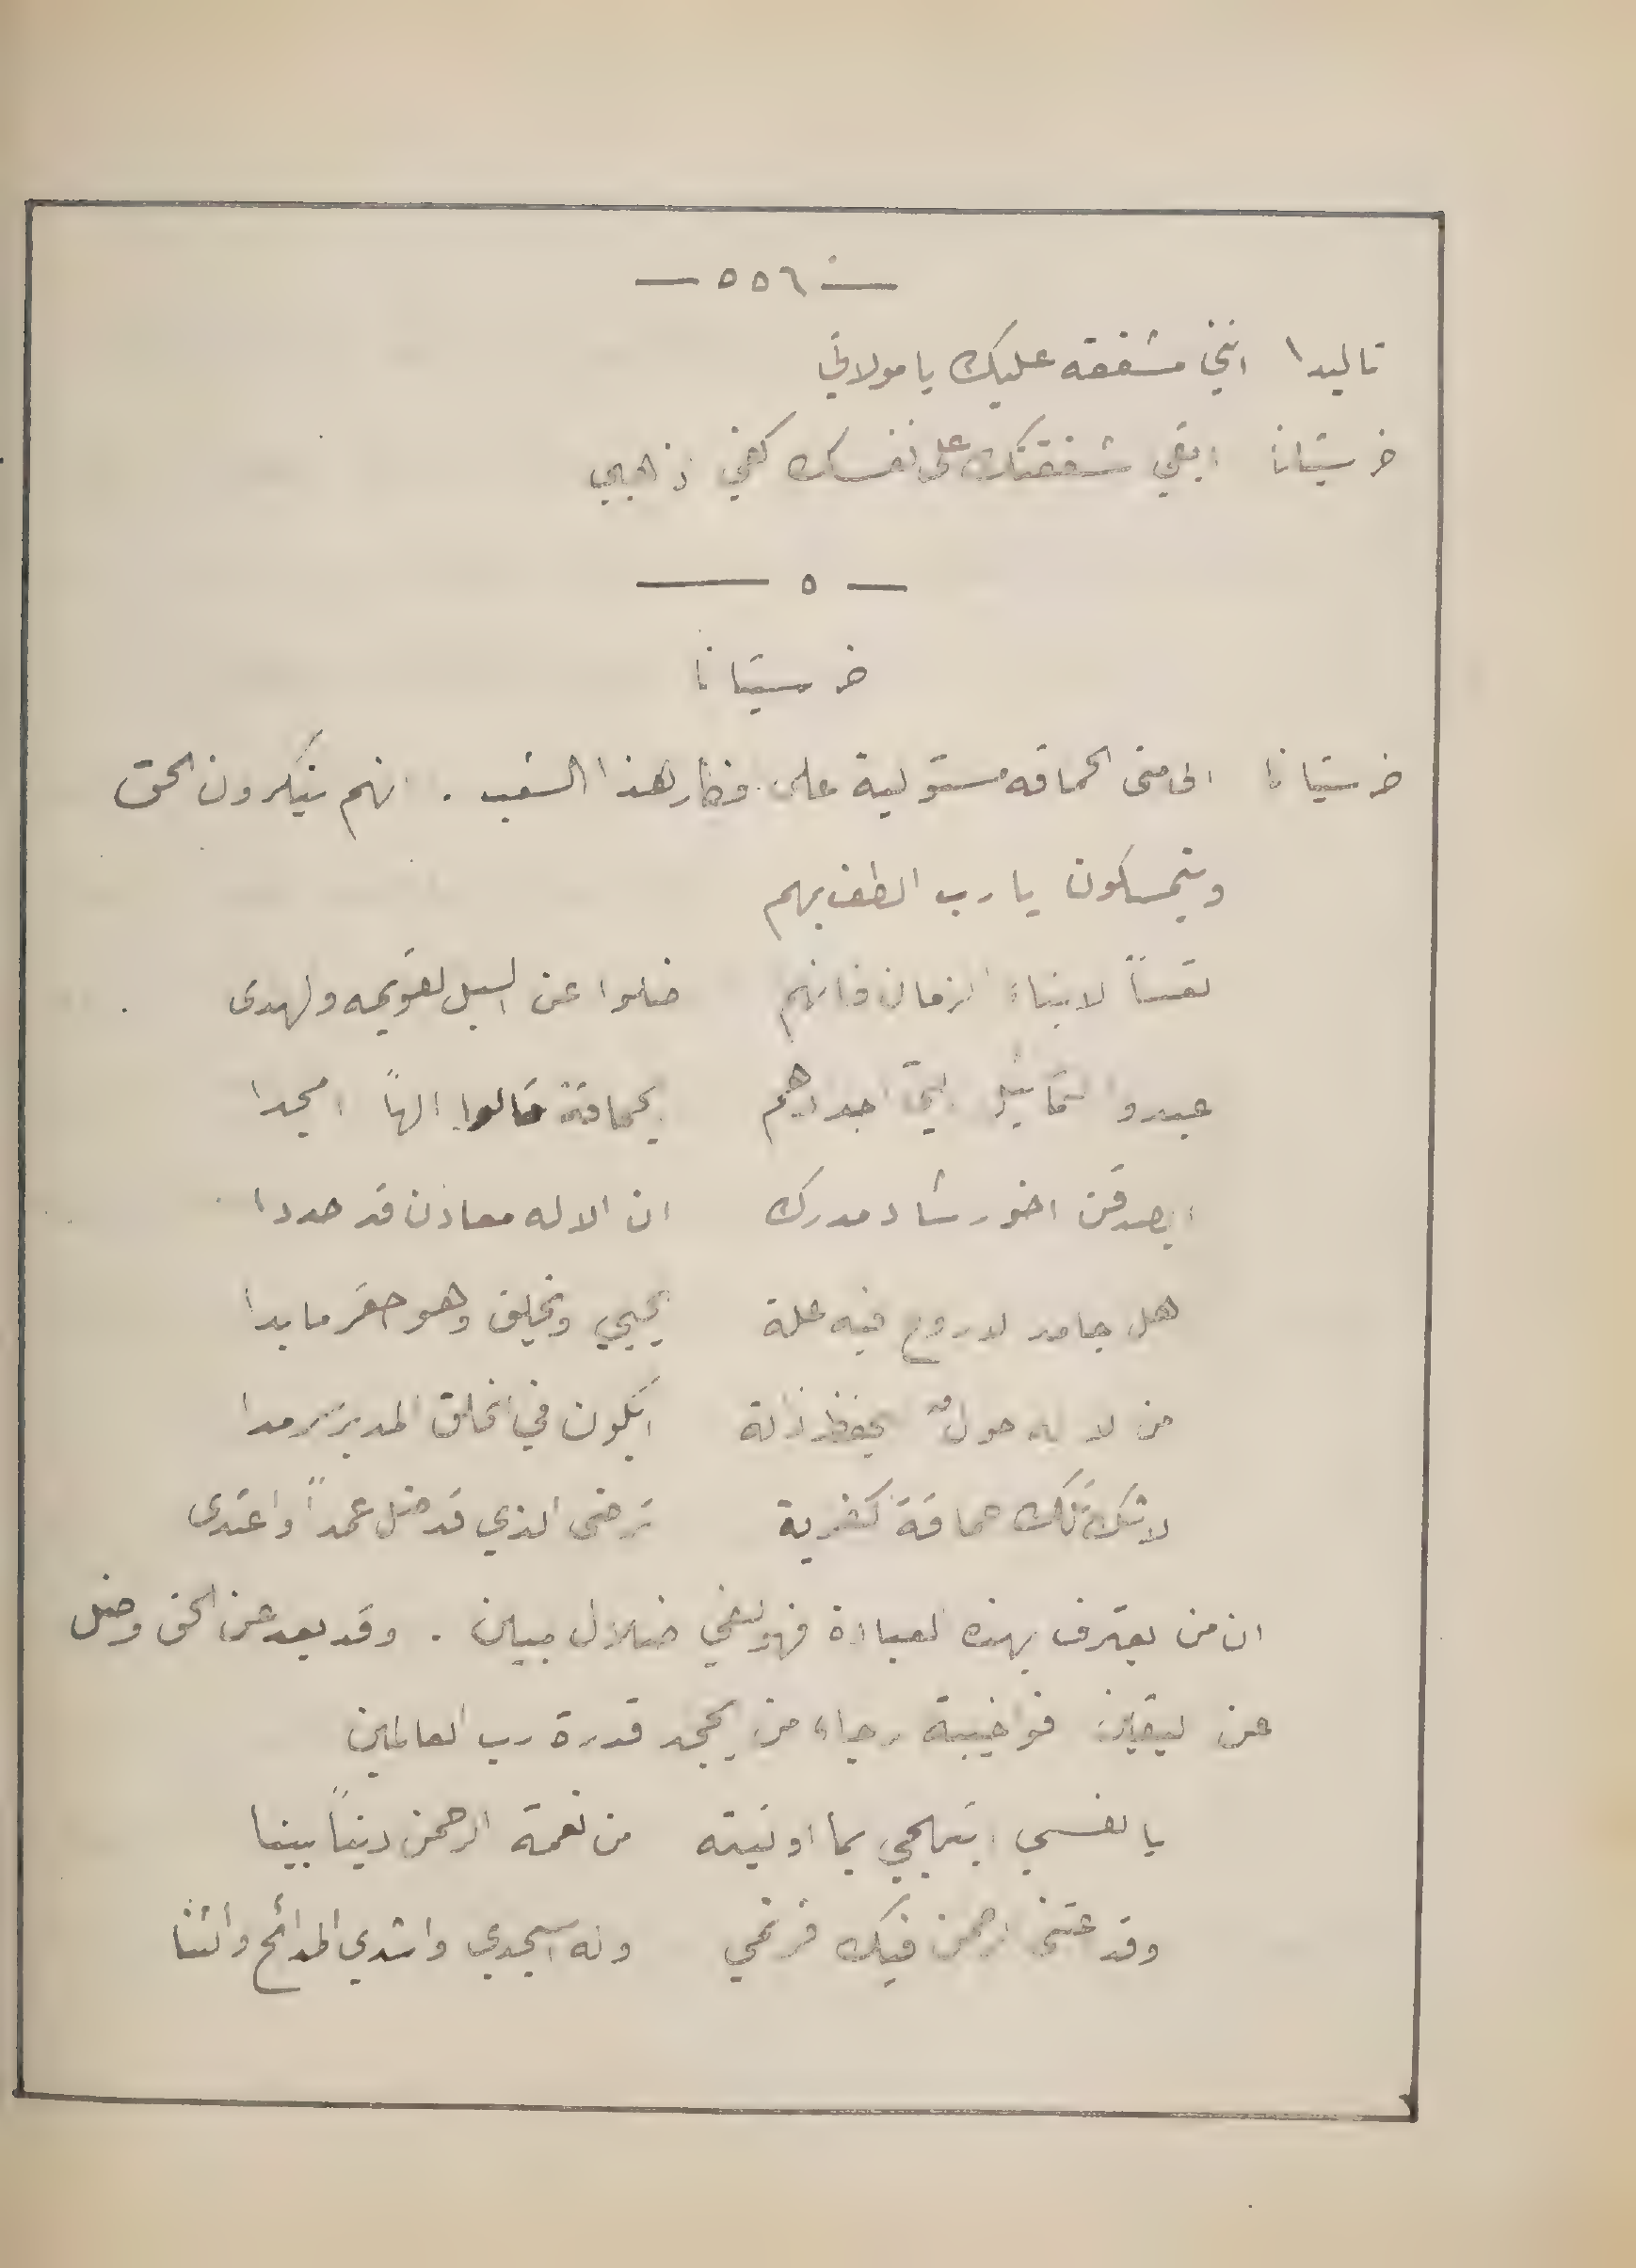 — ٥٥٦ —
تاليدا انني مشفقه عليك يا مولاتي
خرستيانا ابقي شفقتك على نفسك كفى اذهبي
— ٥ —
خرستيانا
خرستيانا الى متى الحماقه مستولية على افكار هذا الشعب . انهم ينكرون الحق
ويتمسكون يا رب الطف بهم
تعساً لابناء الزمان فانهم ضلوا عن السبل القويمه والهدى
عبدوا التماثيل التي اجدادهم بحماقة قالوا الهاً امجدا
ايصدقن اخو رشاد مدرك ان الاله معادن قد حددا
هل جامد لا روح فيه علة يحيي ويخلق وهو احقر ما بدا
من لا له حول يحفظ ذاته ايكون في الخلق المدبر سرمدا
لا شك تلك حماقة كفرية ترضى الذي قد ضل عمداً واعتدى
ان من يعترف بهذه العبادة فهو لفي ضلال مبين . وقد بعد عن الحق وضل
عن اليقين فواخيبة رجاء من يجحد قدرة رب العالمين
يا نفسي ابتهجي بما اوتيته من نعمة الرحمن ديناً بينا
وقد الرحمن فيك فرنمي وله اسجدي وانشدي المدائح والثنا